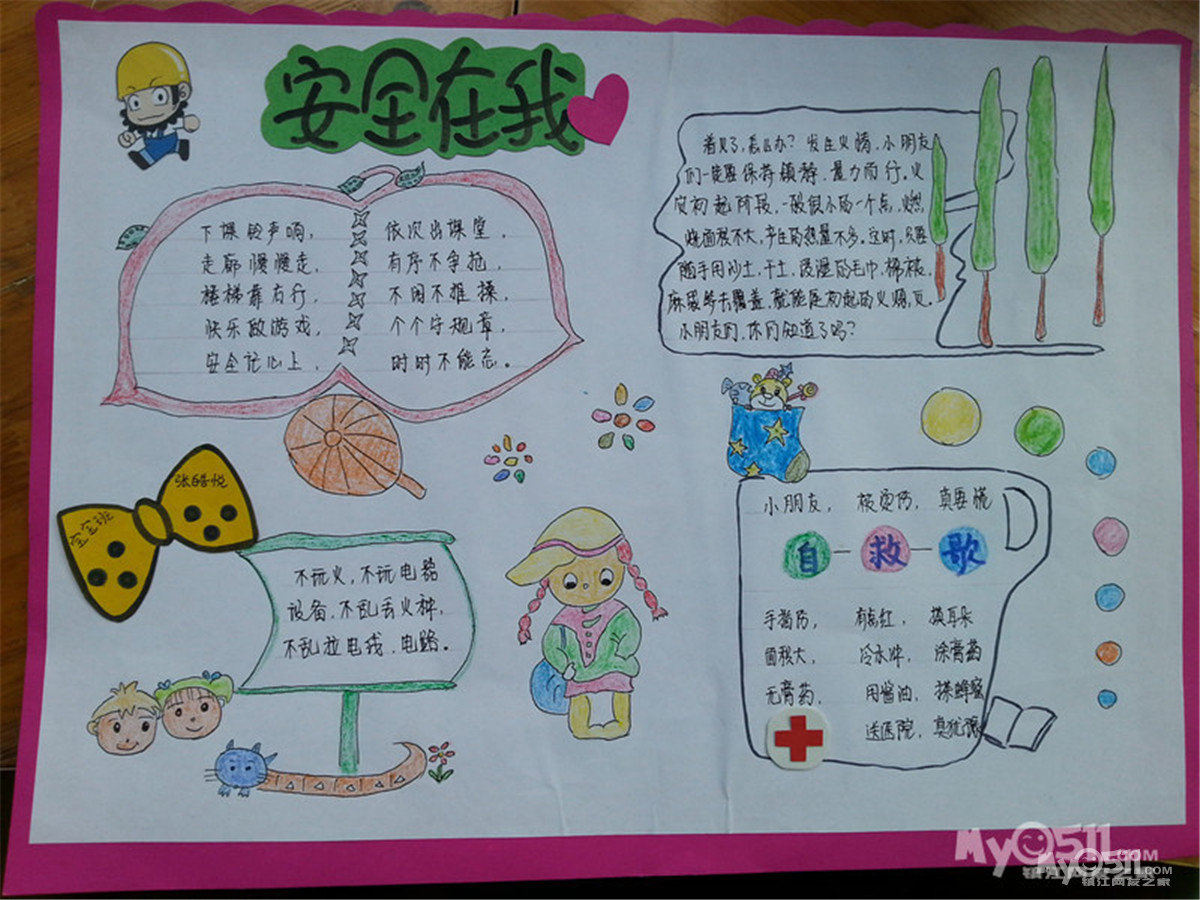 安全在我
下课铃声响，
走廊慢慢走，
楼梯靠右行，
快乐做游戏，
安全记心上，
依次出课堂，
有序不争抢，
不闹不推搡，
个个守规章，
时时不能忘。
着火了，怎么办？发生火情，小朋友
们一定要保持镇静，量力而行。火
灾初起阶段，一般很小的一个点，燃
烧面积不大，产生的热量不多。这时，只要
随手用沙土、干土、浸湿的毛巾、棉被、
麻袋等去覆盖，就能使初起的火熄灭。
小朋友们，你们知道了吗？
张皓悦
宝宝班
不玩火，不玩电器
设备，不乱丢火种，
不乱拉电线、电路。
小朋友， 被烫伤， 真要慌
自—救—歌
手指伤， 有点红， 摸耳朵
面积大， 冷水冲， 涂膏药
无膏药， 用酱油， 搽蜂蜜
送医院， 莫犹豫
My0511.COM
镇江网友之家
My0511.COM
镇江网友之家